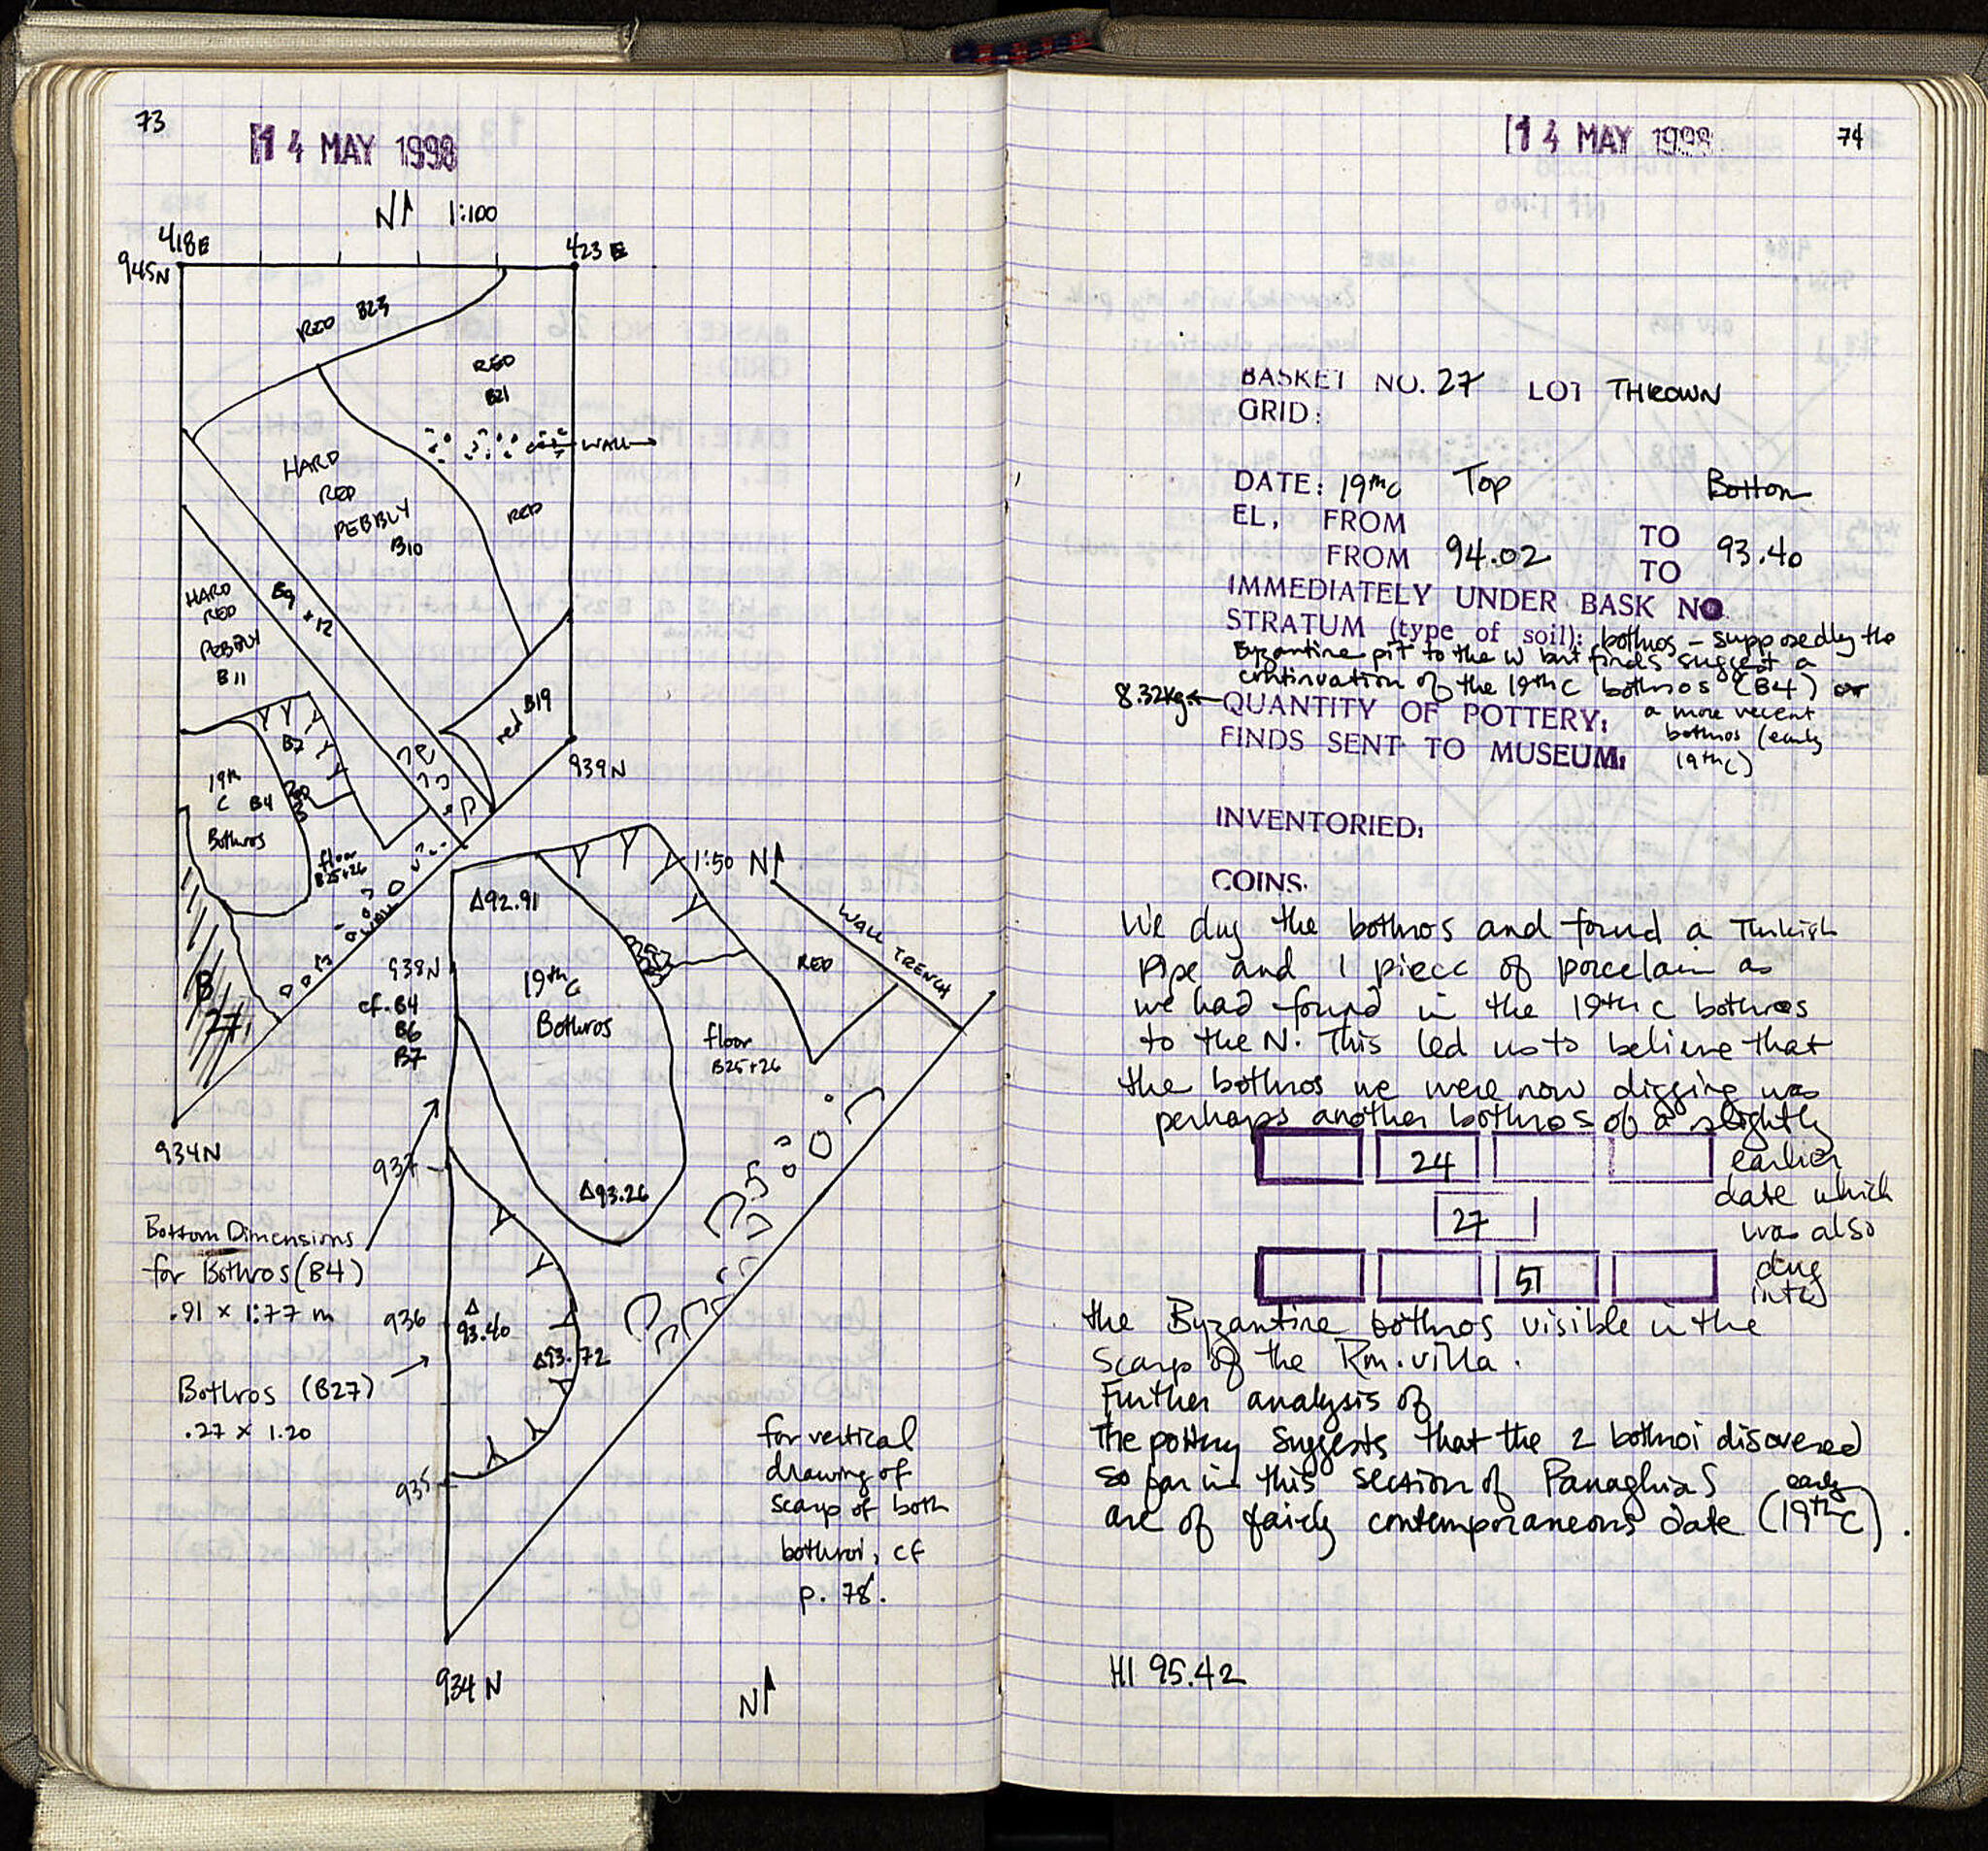 73
14 MAY 1998
N 1:100
418E
423 E
945N
RED B23
RED
B21
WALL
HARD
RED
PEBBLY
B10
RED
HARD
RED
PEBBLY
B11
B9 + 12
B19
red
939N
B7
19th
C B4
Bothros
floor
B25+26
WALL
B
27
934N
1:50 N
Δ92.91
WALL TRENCH
938N
cf. B4
B6
B7
19th C
Bothros
RED
floor
B25+26
937
Δ93.26
Bottom Dimensions
for Bothros (B4)
.91 x 1.77 m
936
Δ
93.40
Δ93.72
Bothros (B27)
.27 x 1.20
935
for vertical
drawing of
scarp of both
bothroi, cf
p. 78.
934 N
N
14 MAY 1998
74
BASKET NO. 27 LOT THROWN
GRID:
DATE: 19th c Top Bottom
EL, FROM TO
FROM 94.02 TO 93.40
IMMEDIATELY UNDER BASK NO
STRATUM (type of soil): bothros - supposedly the
Byzantine pit to the W but finds suggest a
continuation of the 19th C bothros (B4) or
a more recent
bothros (early
19th C)
8.32kg. ← QUANTITY OF POTTERY:
FINDS SENT TO MUSEUM:
INVENTORIED:
COINS.
We dug the bothros and found a Turkish
pipe and 1 piece of porcelain as
we had found in the 19th c bothros
to the N. This led us to believe that
the bothros we were now digging was
perhaps another bothros of a slightly
earlier
date which
was also
dug
into
24
27
51
the Byzantine bothros visible in the
scarp of the Rm. villa.
Further analysis of
the pottery suggests that the 2 bothroi discovered
so far in this section of Panaghia S
are of fairly contemporaneous date (early 19th C).
HI 95.42